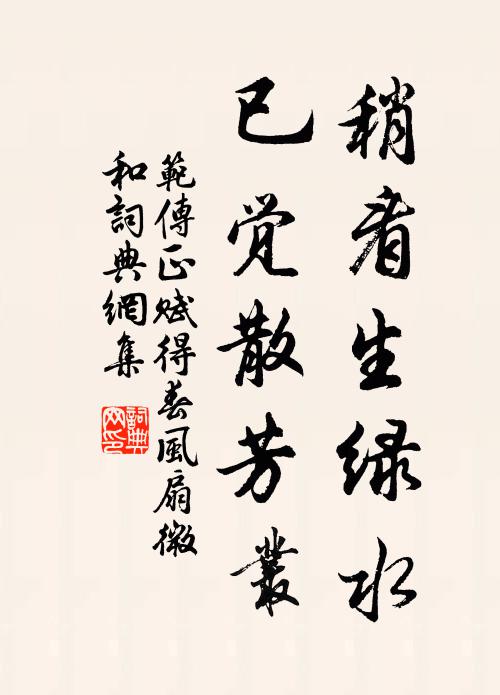 稍看生绿水
已觉散芳叢
範傳正賦得春風扇微
和詞典網集
詞典
網印